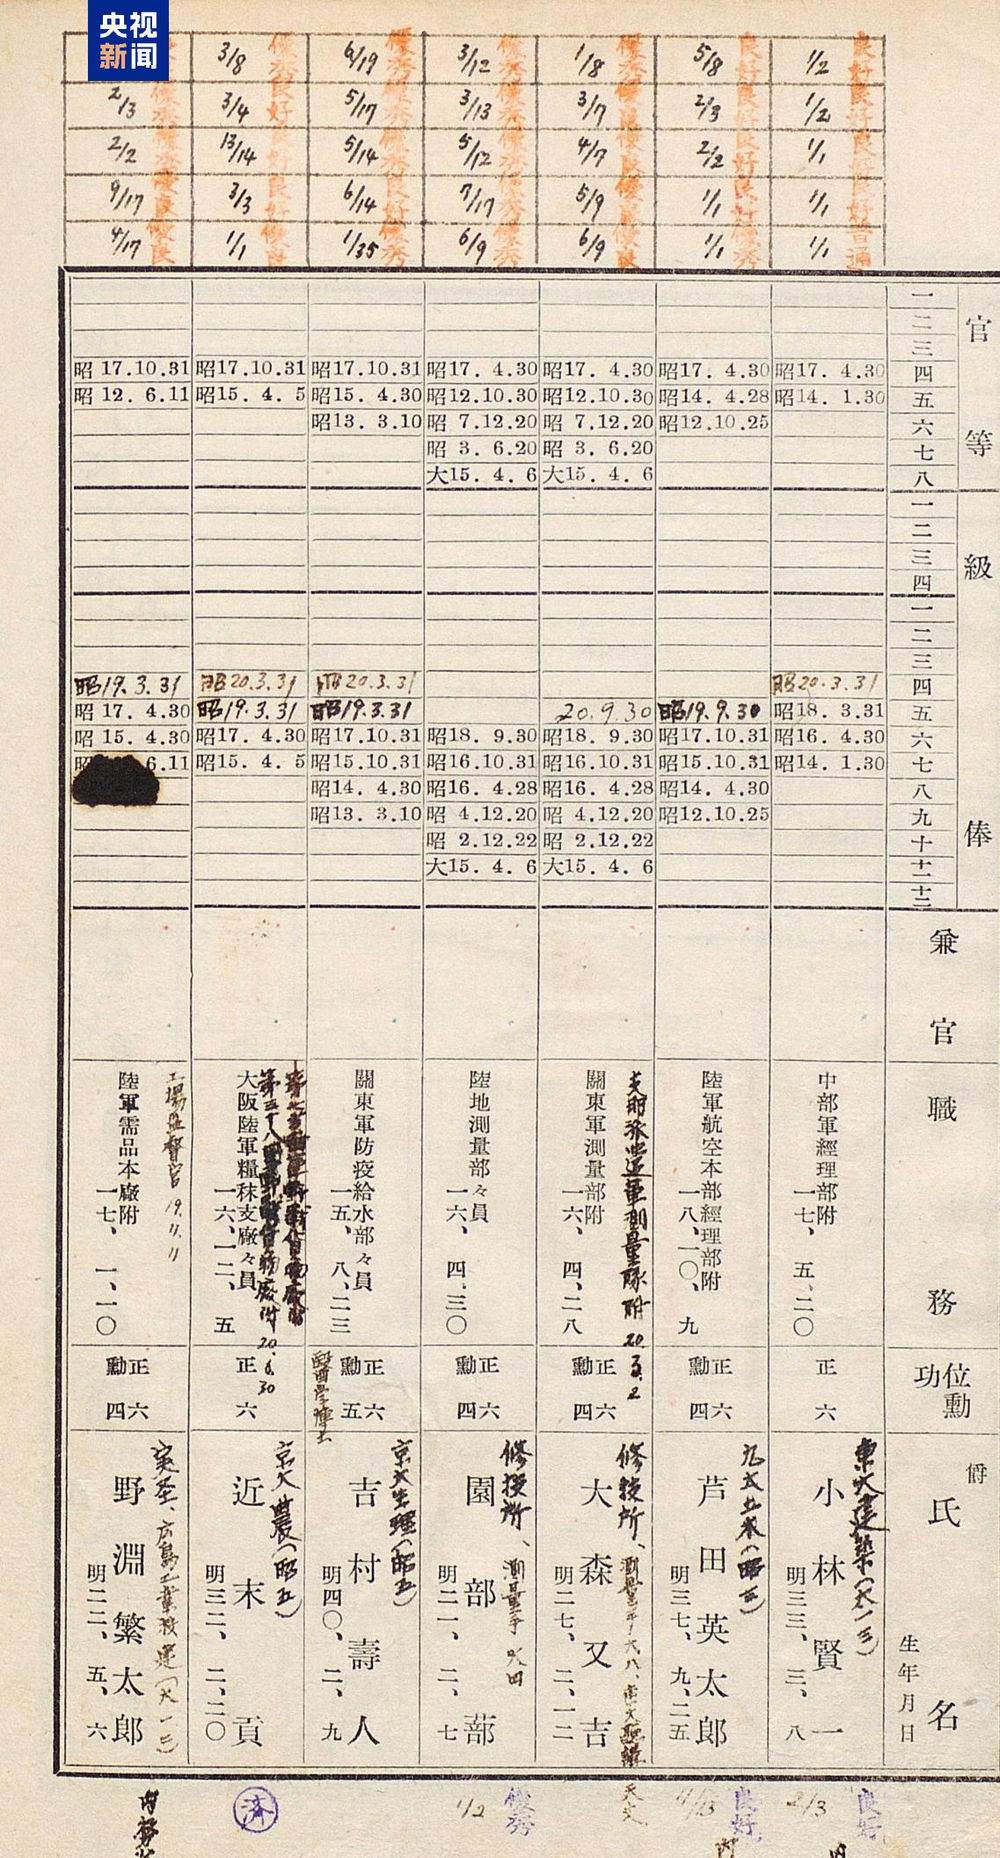 央视
新闻
1/2 良好
5/8 良好
1/8
3/12 優秀
6/19 優秀
3/8 優秀
1/2 良好
2/3 良好
3/7
3/13 優秀
5/17
3/4 良好
2/3
1/1
2/2
4/7
5/12
5/14
13/14
2/2
1/1
1/1
5/9
7/17
6/14
3/3
9/17
1/1 普通
1/1
6/9
6/9
1/35
1/1
4/17
官等
一
二
三
四
五
六
七
八
昭17. 4.30
昭14. 1.30
昭17. 4.30
昭14. 4.28
昭12.10.25
昭17. 4.30
昭12.10.30
昭 7.12.20
昭 3. 6.20
大15. 4. 6
昭17. 4.30
昭12.10.30
昭 7.12.20
昭 3. 6.20
大15. 4. 6
昭17.10.31
昭15. 4.30
昭13. 3.10
昭17.10.31
昭15. 4. 5
昭 17.10.31
昭 12. 6.11
級俸
一
二
三
四
一
二
三
四
五
六
七
八
九
十
十一
十二
昭20.3.31
昭18. 3.31
昭16. 4.30
昭14. 1.30
昭19.9.30
昭17.10.31
昭15.10.31
昭14. 4.30
昭12.10.25
20.9.30
昭18. 9.30
昭16.10.31
昭16. 4.28
昭 4.12.20
昭 2.12.22
大15. 4. 6
昭18. 9.30
昭16.10.31
昭16. 4.28
昭 4.12.20
昭 2.12.22
大15. 4. 6
昭20.3.31
昭19.3.31
昭17.10.31
昭15.10.31
昭14. 4.30
昭13. 3.10
昭20.3.31
昭19.3.31
昭17. 4.30
昭15. 4. 5
昭19.3.31
昭 17. 4.30
昭 15. 4.30
昭 6.11
兼官
職務
中部軍經理部附
一七、五、二〇
陸軍航空本部經理部附
一八、一〇、九
支那派遣軍測量隊附 20.3.2
關東軍測量部附
一六、四、二八
陸地測量部々員
一六、四、三〇
關東軍防疫給水部々員
一五、八、二三
大阪陸軍糧秣支廠々員
一六、一二、五
20.6.30
工場監督官 19.11.11
陸軍需品本廠附
一七、一、一〇
位勳功
正六
正六
勳四
正六
勳四
正六
勳四
正六
勳五
正六
正六
勳四
爵
氏名
生年月日
東大建築(大一三)
小林賢一
明三三、三、八
芦田英太郎
明三七、九、二五
修技所、
大森又吉
明二七、二、一二
修技所、測量手
園部蔀
明二一、二、七
京大生理(昭五)
吉村壽人
明四〇、二、九
京大農(昭五)
近末貢
明三二、二、二〇
広島工業
野淵繁太郎
明二二、五、六
良好
2/3
良好
天文
優秀
1/2
済